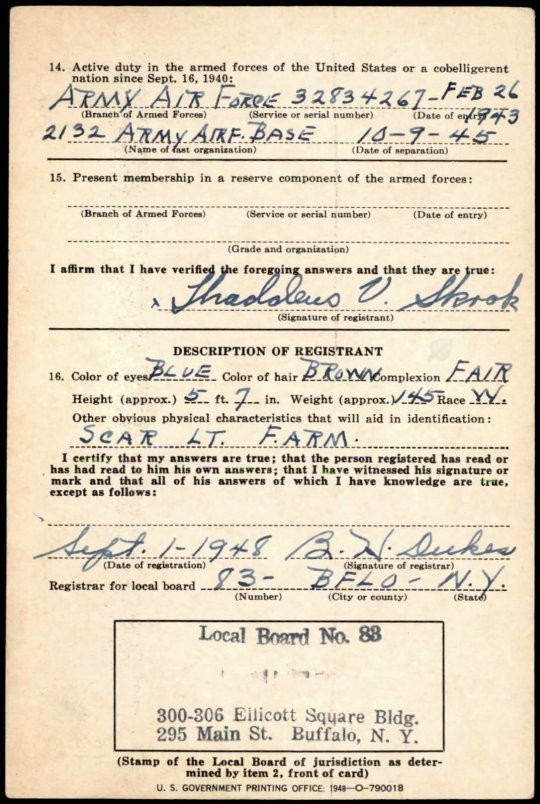 14. Active duty in the armed forces of the United States or a cobelligerent
nation since Sept. 16, 1940:
ARMY AIR FORCE 32834267 - FEB 26
1943
(Branch of Armed Forces) (Service or serial number) (Date of entry)
2132 ARMY AIRF. BASE 10-9-45
(Name of last organization) (Date of separation)
15. Present membership in a reserve component of the armed forces:
(Branch of Armed Forces) (Service or serial number) (Date of entry)
(Grade and organization)
I affirm that I have verified the foregoing answers and that they are true:
Thaddeus V. Skrok
(Signature of registrant)
DESCRIPTION OF REGISTRANT
16. Color of eyes BLUE Color of hair BROWN Complexion FAIR
Height (approx.) 5 ft. 7 in. Weight (approx.) 145 Race W.
Other obvious physical characteristics that will aid in identification:
SCAR LT. FARM.
I certify that my answers are true; that the person registered has read or
has had read to him his own answers; that I have witnessed his signature or
mark and that all of his answers of which I have knowledge are true,
except as follows:
Sept. 1-1948 B. W. Dukes
(Date of registration) (Signature of registrar)
Registrar for local board 83- BFLO- N.Y.
(Number) (City or county) (State)
Local Board No. 83
300-306 Ellicott Square Bldg.
295 Main St. Buffalo, N. Y.
(Stamp of the Local Board of jurisdiction as deter-
mined by item 2, front of card)
U. S. GOVERNMENT PRINTING OFFICE: 1948—O-790018